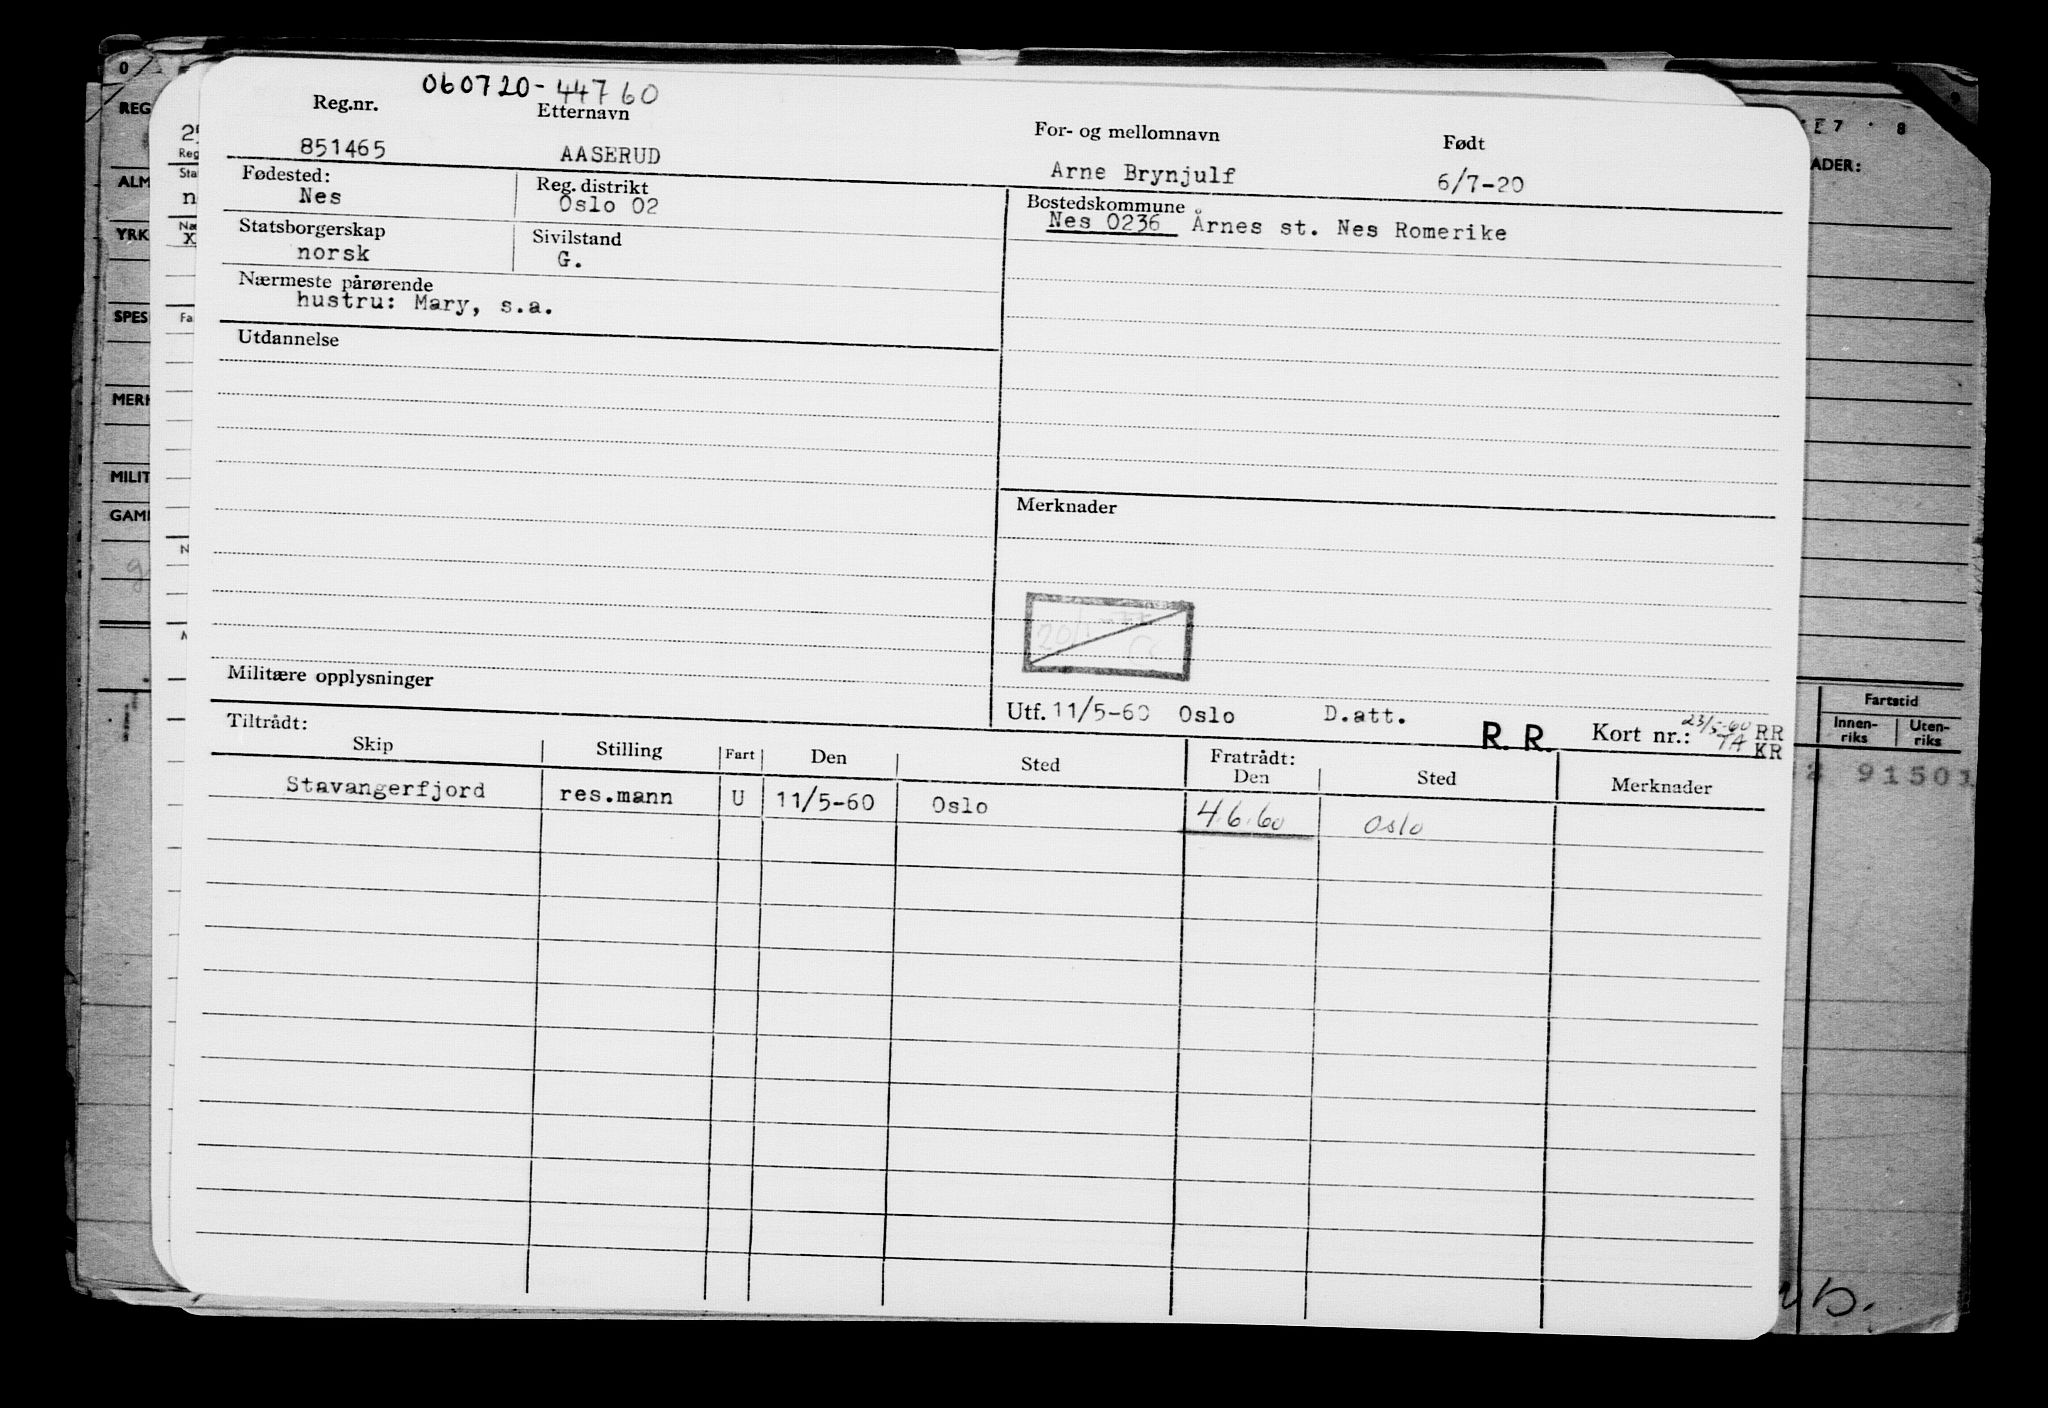 060720-44760
Reg.nr. Etternavn For- og mellomnavn Født
851465 AASERUD Arne Brynjulf 6/7-20
Fødested: Reg. distrikt Bostedskommune
Nes Oslo 02 Nes 0236 Årnes st. Nes Romerike
Statsborgerskap Sivilstand
norsk G.
Nærmeste pårørende
hustru: Mary, s.a.
Utdannelse
Merknader
Militære opplysninger
Utf. 11/5-60 Oslo D.att. R. R. Kort nr.: 23/5-60 RR
TA KR
Tiltrådt: Fratrådt:
Skip Stilling Fart Den Sted Den Sted Merknader
Stavangerfjord res.mann U 11/5-60 Oslo 4.6.60 Oslo
REG
ALM
YRK
SPES
MERK
MILIT
GAM
ADER:
7 8
Fartstid
Innen-riks Uten-riks
91501